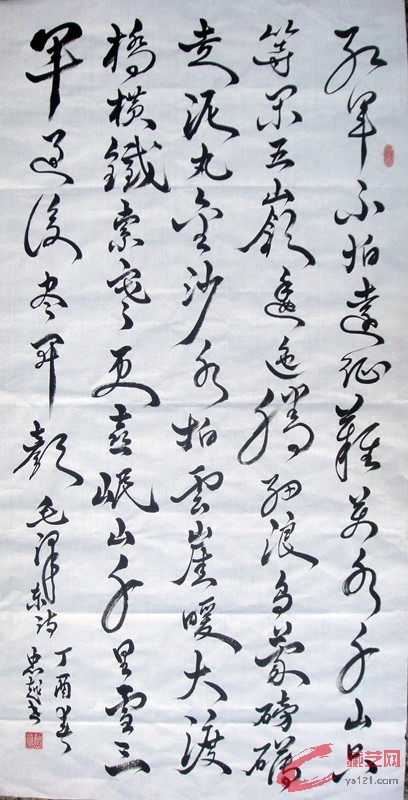 红军不怕遠征難萬水千山只
等闲五嶺逶迤腾细浪乌蒙磅礴
走泥丸金沙水拍雲崖暖大渡
橋横鐵索寒更喜岷山千里雪三
军过後尽开颜
毛泽东诗
丁酉春
忠越书
ys121.com